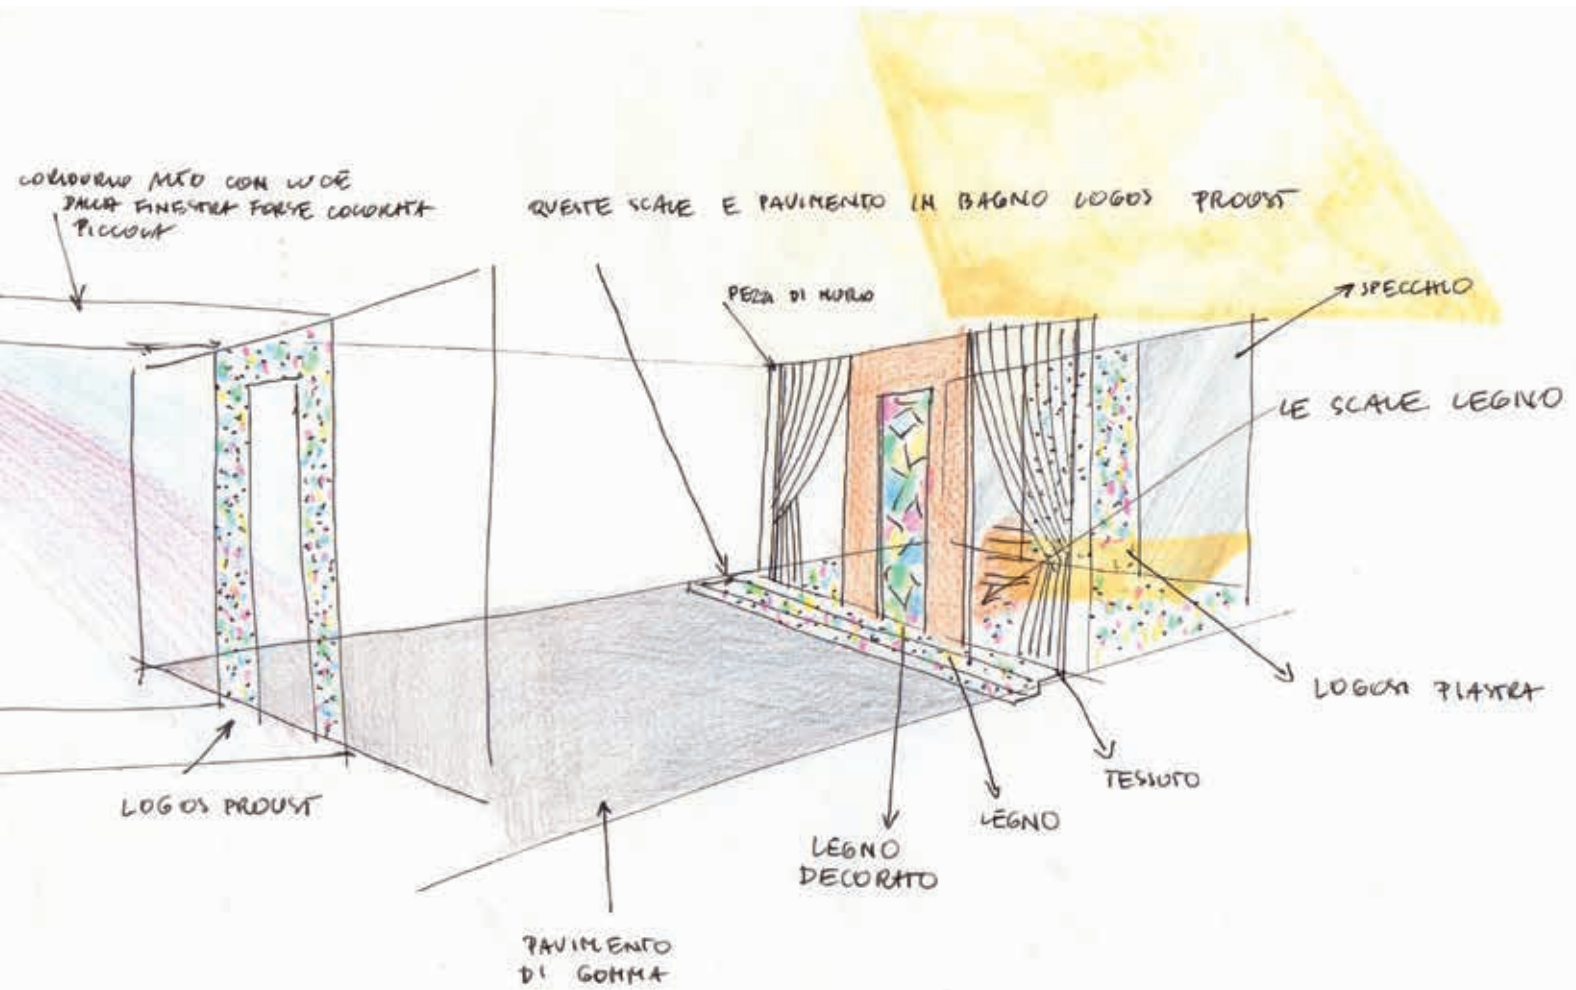 CORIDORIO ALTO CON LUCE
DALLA FINESTRA FORSE COLORATA
PICCOLA
QUESTE SCALE E PAVIMENTO IN BAGNO LOGOS PROUST
PEZZO DI MURO
SPECCHIO
LE SCALE LEGNO
LOGOS PIASTRA
TESSUTO
LEGNO
LEGNO
DECORATO
LOGOS PROUST
PAVIMENTO
DI GOMMA